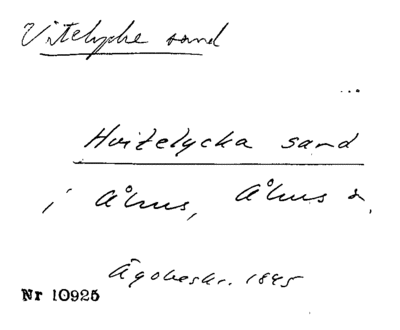 Vitelycke sand
...
Hvitelycka sand
i Åhus, Åhus s.
Ägobeskr. 1845
Nr 10925